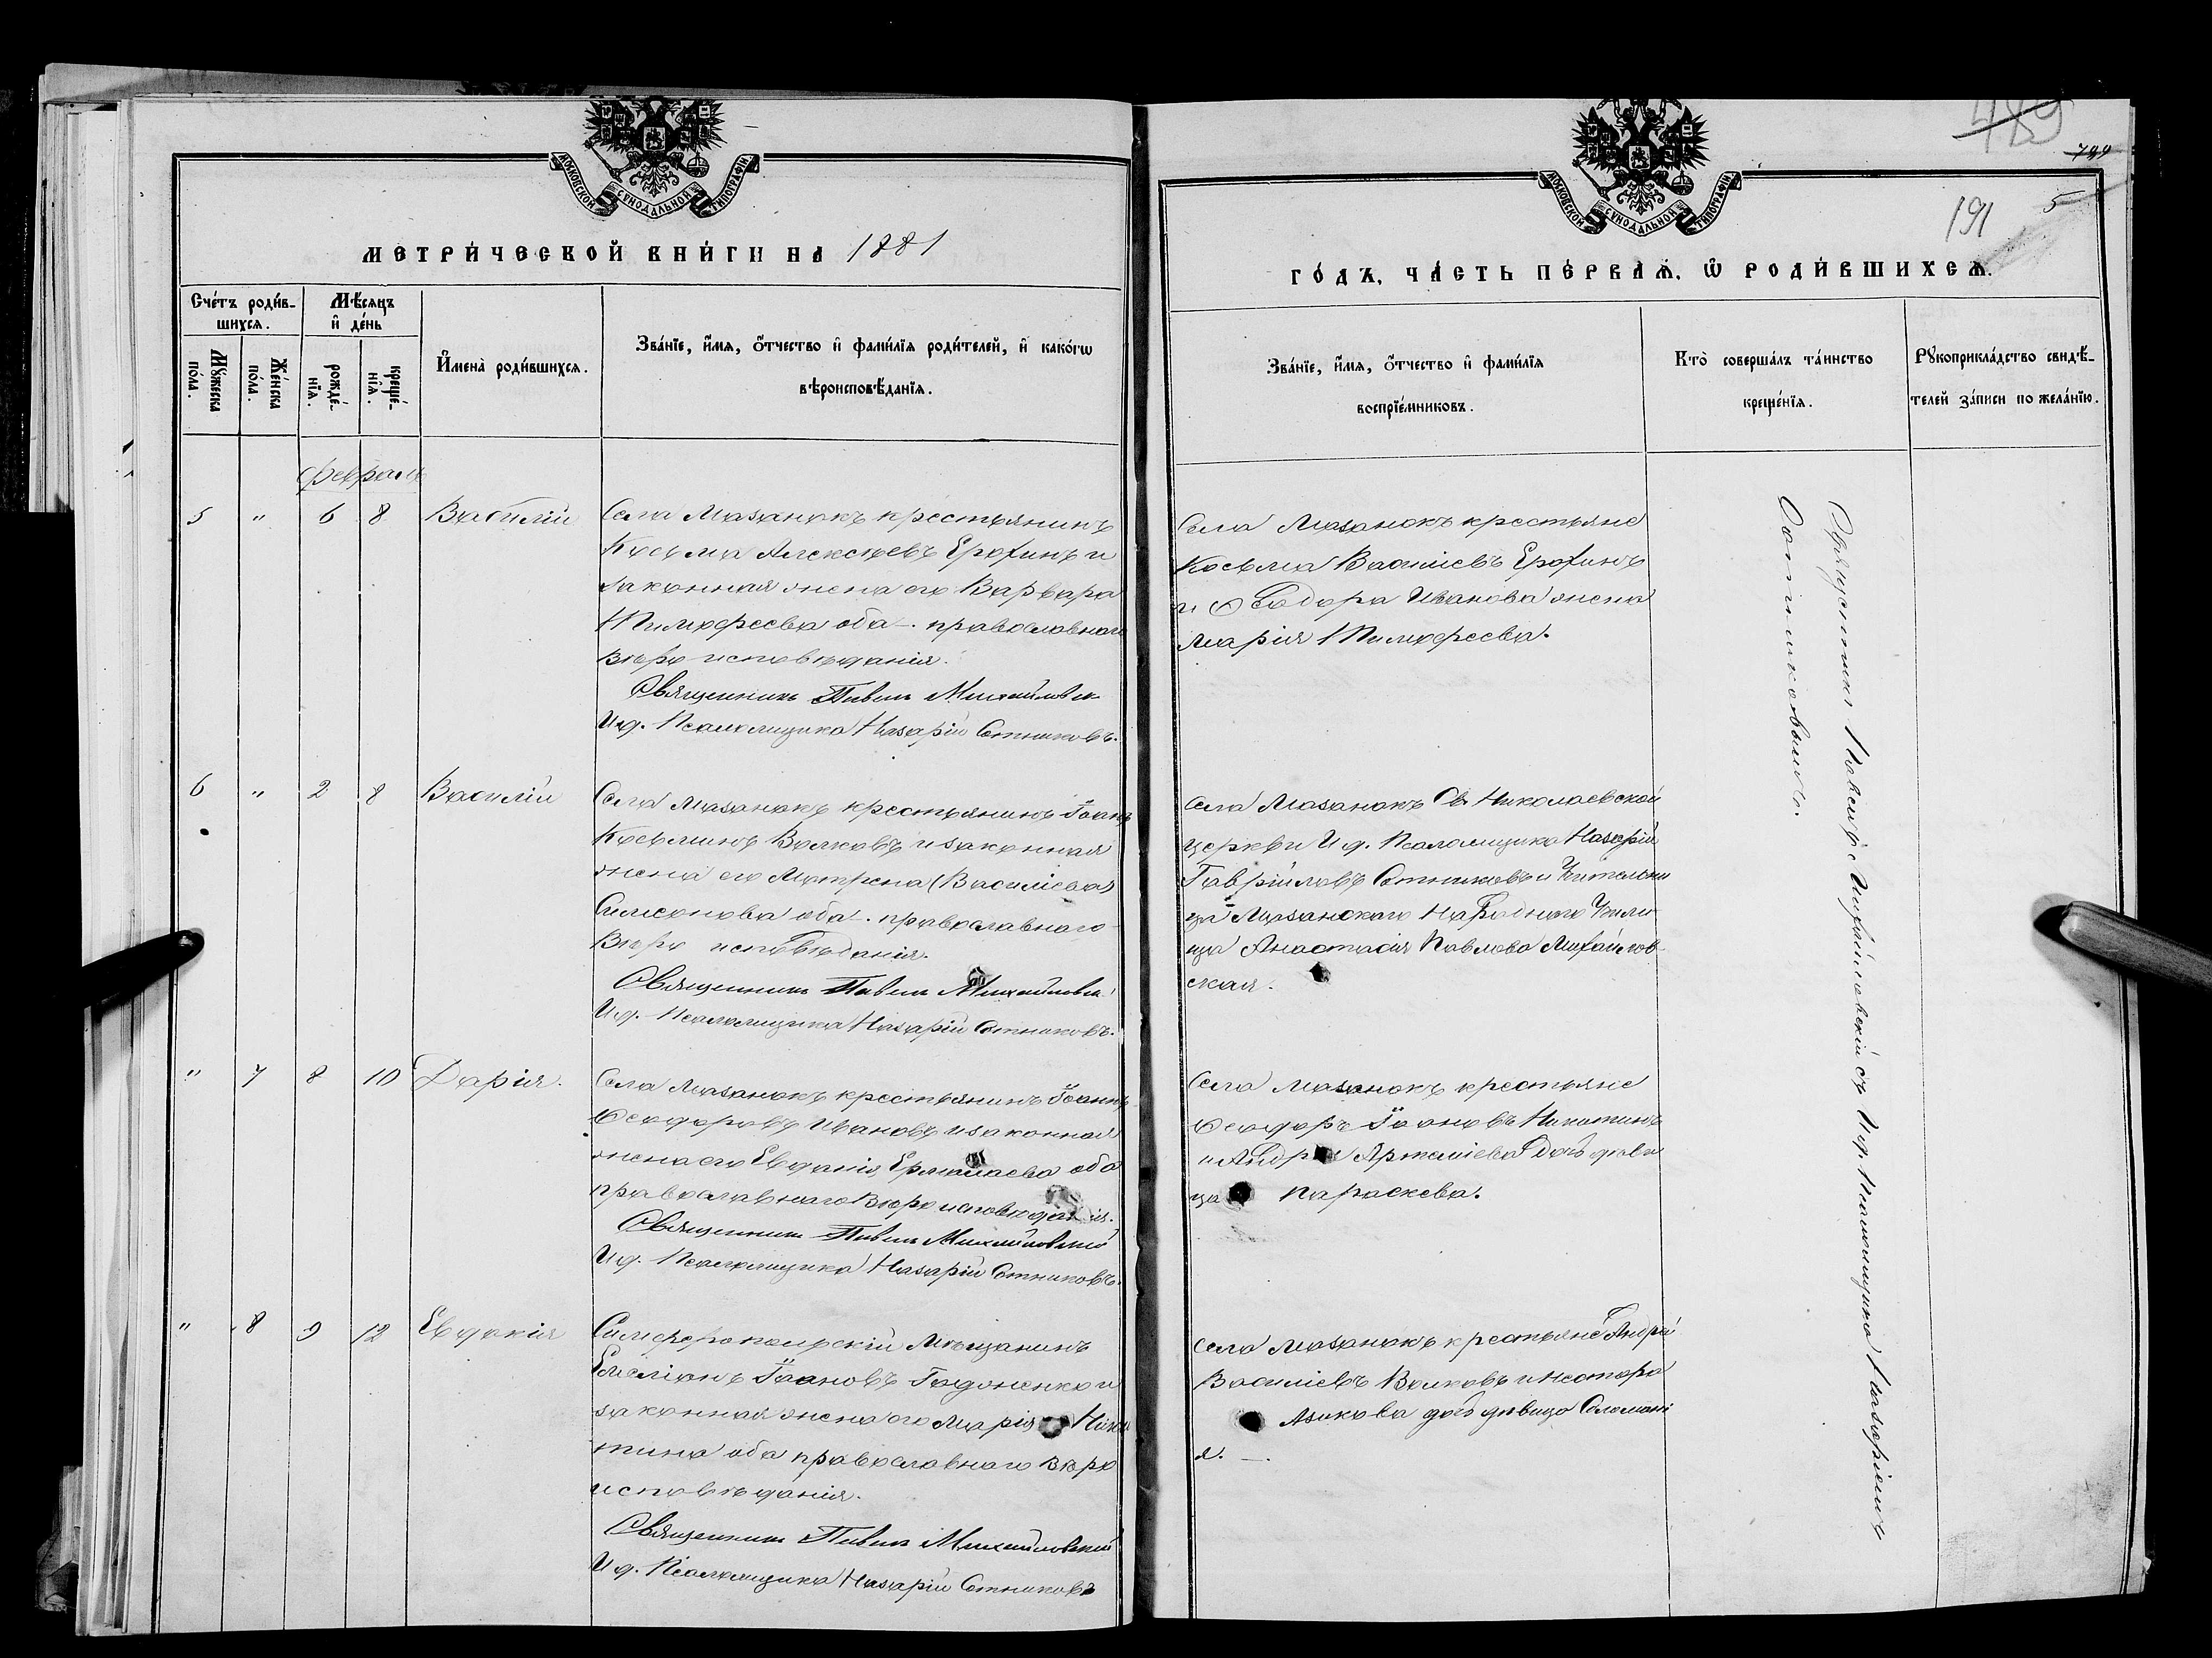 МОСКОВСКОЙ СѴНОДАЛЬНОЙ ТИПОГРАФІИ
МЕТРИ́ЧЕСКОЙ КНИ́ГИ НА 1881
Сче́тъ роди́в-
шихся.
Мѣ́сяцъ
и҆ де́нь
Мꙋ́жеска
по́ла.
Же́нска
по́ла.
рожде́-
нїѧ.
креще́-
нїѧ.
И҆мена̀ роди́вшихсѧ.
Зва́нїе, и҆́мѧ, ѻ҆́тчество и҆ фами́лїѧ роди́телей, и҆ како́гѡ
вѣроисповѣ́данїѧ.
Февраль
5 " 6 8 Василій
Села Мазанокъ крестьянинъ
Косьма Алексѣевъ Ерохинъ и
законная жена его Варвара
Тимофеева оба православнаго
Вѣро исповѣданія.
Священникъ Павелъ Михайловск
И.д. Псаломщика Назарій Сотниковъ.
6 " 2 8 Василій
Села Мазанокъ крестьянинъ Іоаннъ
Косьминъ Волковъ и законная
жена его Матрена (Василіева)
Симеонова оба православнаго
Вѣро исповѣданія.
Священникъ Павелъ Михайловск
И.д. Псаломщика Назарій Сотниковъ.
" 7 8 10 Дарія.
Села Мазанокъ крестьянинъ Іоаннъ
Ѳеодоровъ Ивановъ и законная
жена его Евдокія Ермолаева оба
православнаго Вѣро исповѣданія.
Священникъ Павелъ Михайловскій
И.д. Псаломщика Назарій Сотниковъ.
" 8 9 12 Евдокія
Симферопольскій Мѣщанинъ
Емеліанъ Іоановъ Годоненко и
законная жена его Марія Ники
тина оба православнаго Вѣро
исповѣданія.
Священникъ Павелъ Михайловскій
И.д. Псаломщика Назарій Сотниковъ
МОСКОВСКОЙ СѴНОДАЛЬНОЙ ТИПОГРАФІИ
489
191
5
ГО́ДЪ, ЧА́СТЬ ПЕ́РВАѦ, Ѽ РОДИ́ВШИХСѦ.
Зва́нїе, и҆́мѧ, ѻ҆́тчество и҆ фами́лїѧ
воспрїе́мниковъ.
Кто̀ соверша́лъ та́инство
креще́нїѧ.
Рꙋкоприкла́дство свидѣ́-
телей за́писи по жела́нїю.
Села Мазанокъ крестьяне
Косьма Василіевъ Ерохинъ
и Ѳеодора Иванова жена
Марія Тимофеева.
Села Мазанокъ Св. Николаевской
церкви И.д. Псаломщика Назарій
Гавріиловъ Сотниковъ и Учительни
ца Мазанскаго Народнаго Учили
ща Анастасія Павлова Михайлов-
ская.
Села Мазанокъ крестьяне
Ѳеодоръ Іоановъ Никитинъ
и Андрея Артеміева дочь дѣви
ца Параскева.
Села Мазанокъ крестьяне Андрей
Василіевъ Волковъ и Нестора
Азикова дочь дѣвица Соломоні
я.
Священникъ Павелъ Михайловскій съ И.д. Псаломщика Назаріемъ
Сотниковымъ.